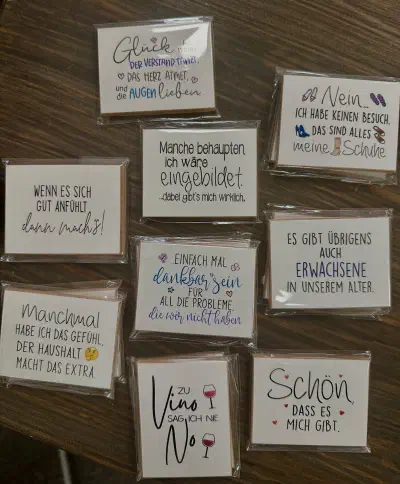 Glück ist, wenn
DER VERSTAND TANZT,
DAS HERZ ATMET,
und
die AUGEN lieben
Nein...
ICH HABE KEINEN BESUCH,
DAS SIND ALLES
meine Schuhe
Manche behaupten,
ich wäre
eingebildet.
...dabei gibt's mich wirklich.
WENN ES SICH
GUT ANFÜHLT,
dann mach's!
ES GIBT ÜBRIGENS
AUCH
ERWACHSENE
IN UNSEREM ALTER.
EINFACH MAL
dankbar sein
FÜR
ALL DIE PROBLEME,
die wir nicht haben
Manchmal
HABE ICH DAS GEFÜHL,
DER HAUSHALT
MACHT DAS EXTRA.
ZU
Vino
SAG ICH NIE
No
Schön,
DASS ES
MICH GIBT.